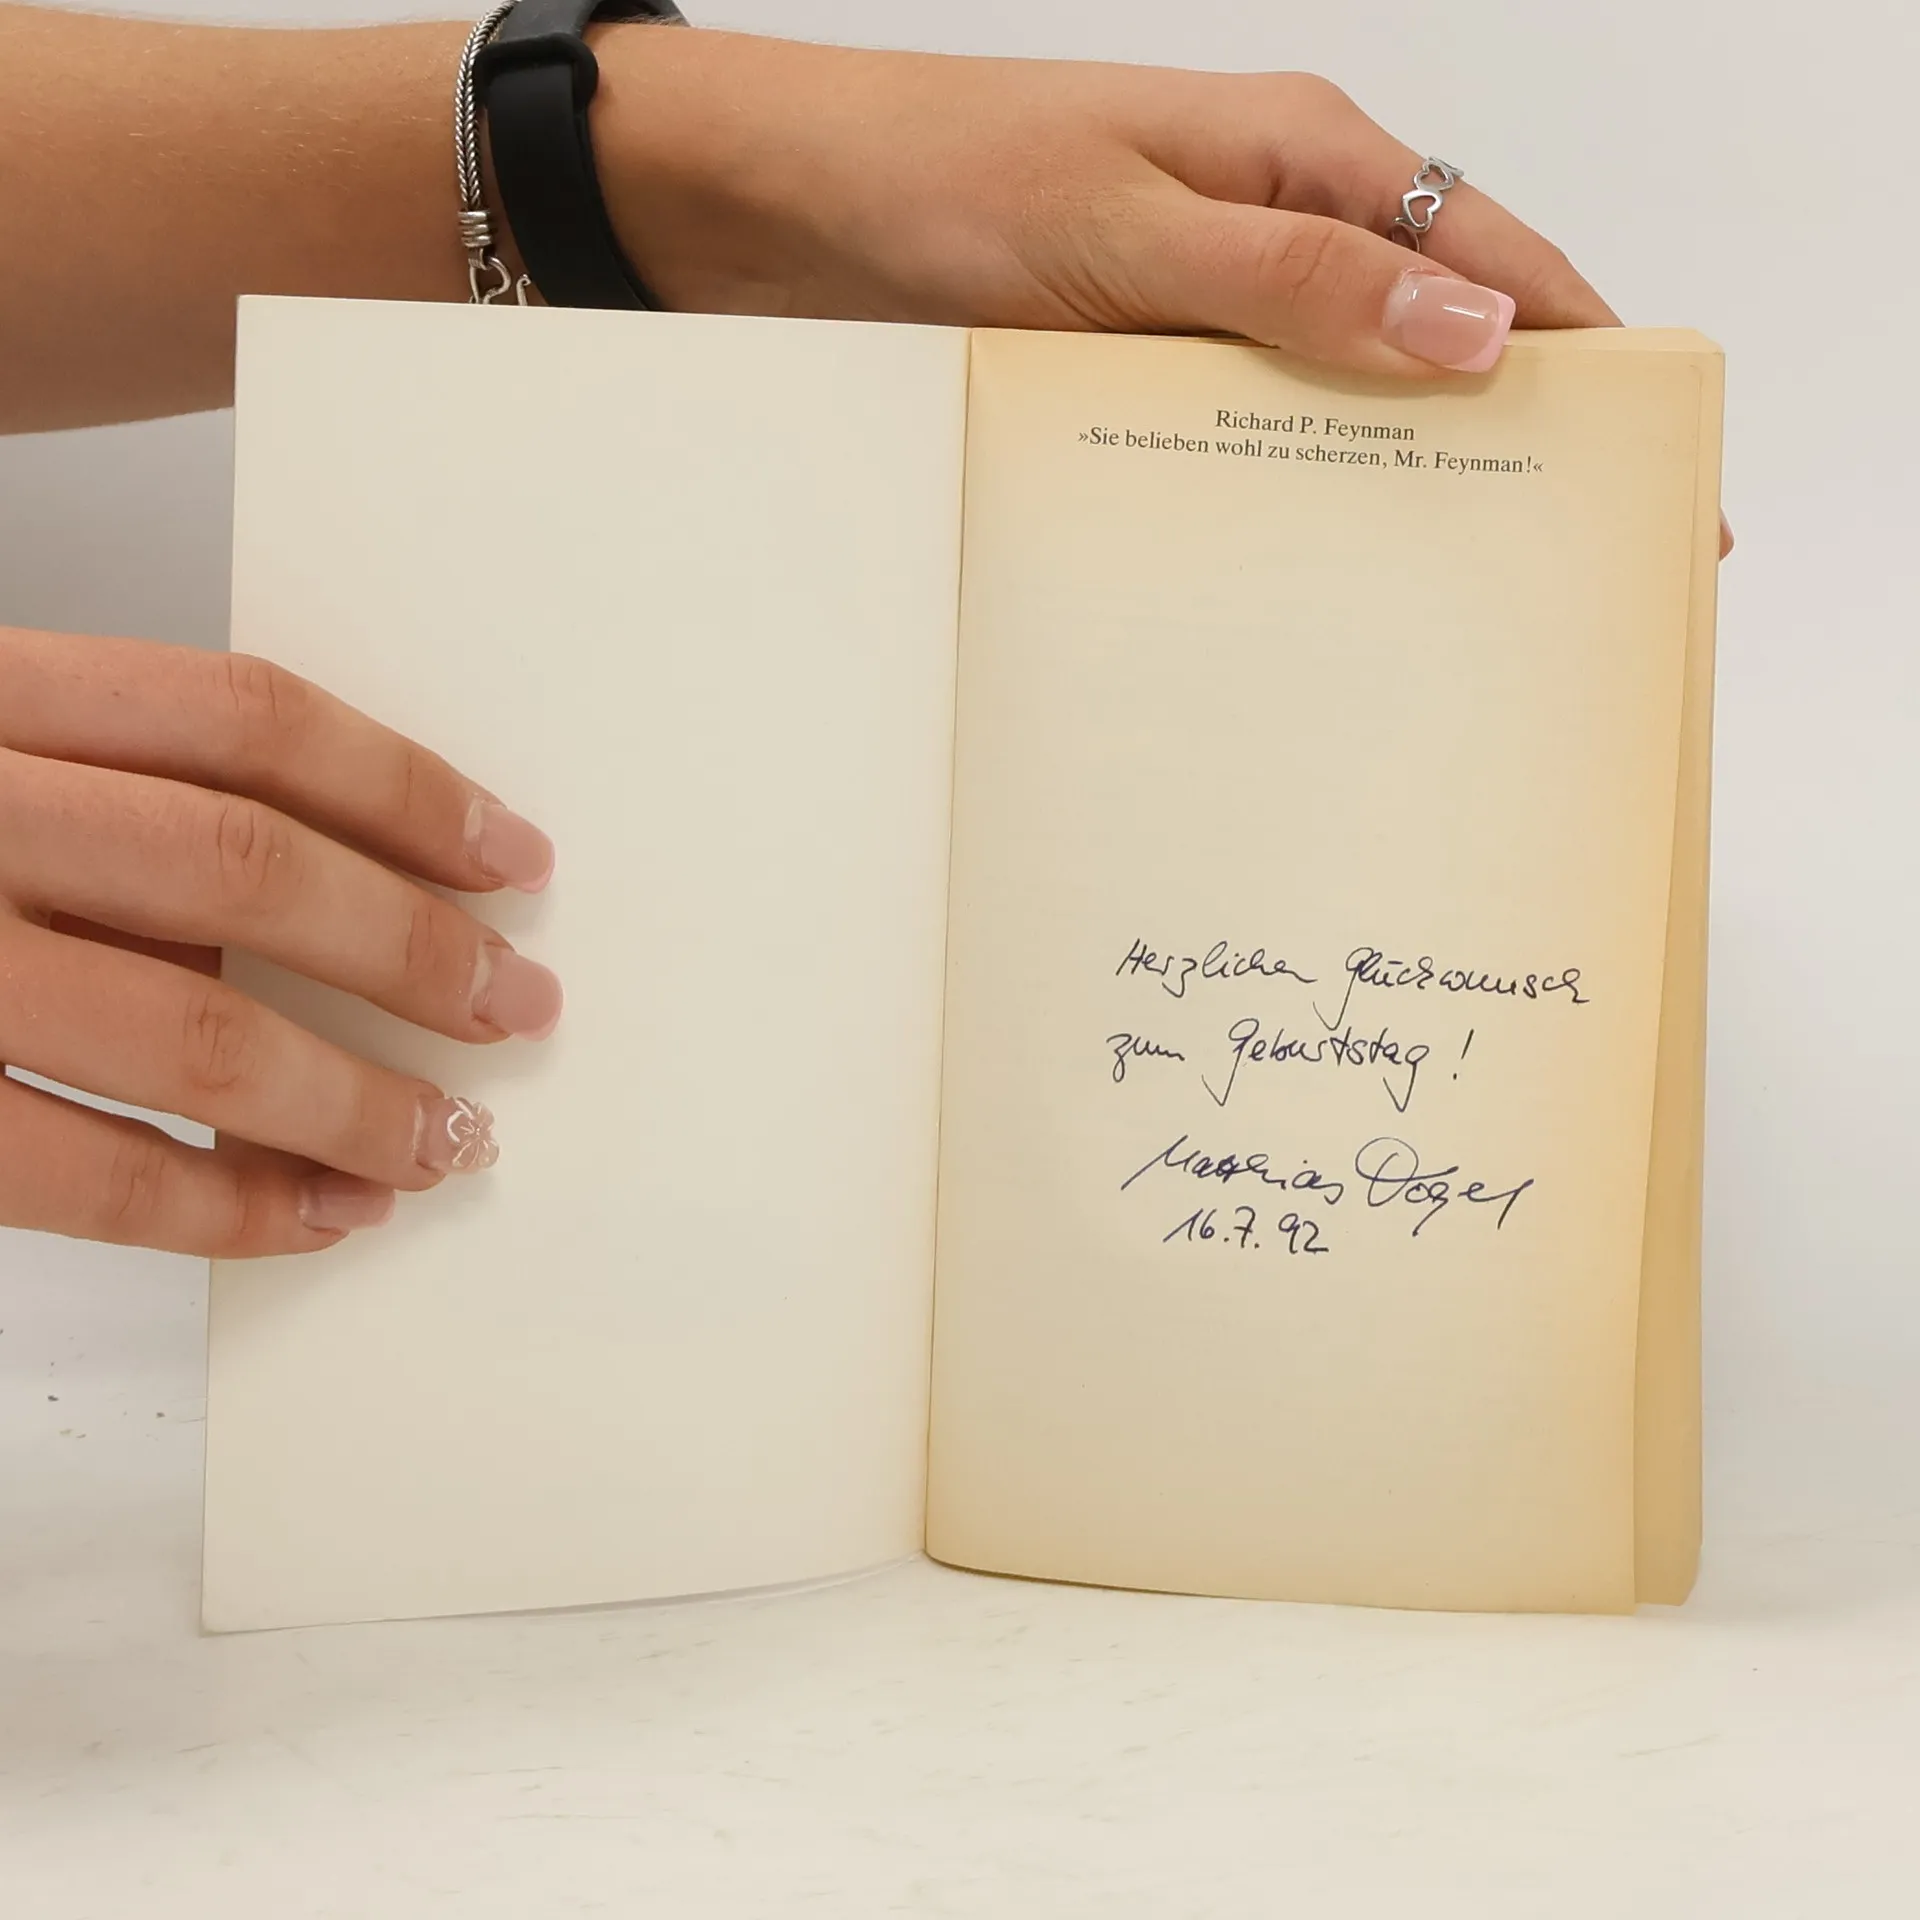 Richard P. Feynman
»Sie belieben wohl zu scherzen, Mr. Feynman!«
Herzlichen Glückwunsch
zum Geburtstag!
Matthias Vogel
16.7.92